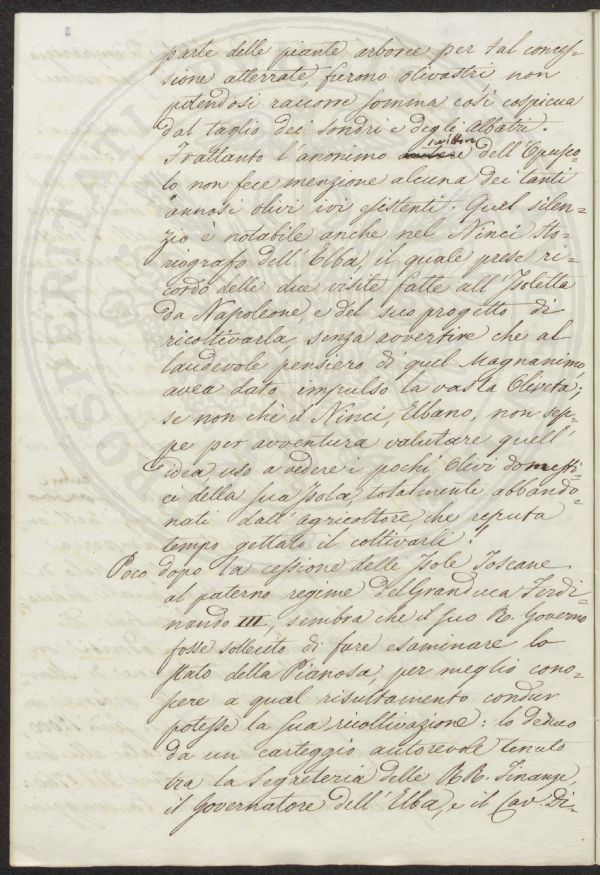 parte delle piante arboree per tal conces-
sione atterrate, furono olivastri, non
potendosi raccorre somma così cospicua
dal taglio dei sondri e degli Albatri.
Frattanto l'anonimo autore scrittore dell'Opusco-
lo non fece menzione alcuna dei tanti
annosi olivi ivi esistenti. Quel silen=
zio è notabile anche nel Ninci Sto-
riografo dell'Elba, il quale prese ri-
cordo delle due visite fatte all'Isoletta
da Napoleone, e del suo progetto di
ricoltivarla, senza avvertire che al
laudevole pensiero di quel Magnanimo
avea dato impulso la vasta Oliveta;
se non chè il Ninci, Elbano, non sep-
pe per avventura valutare quell'
idea, uso a vedere i pochi Olivi domesti-
ci della sua Isola, totalmente abbando-
nati dall'agricoltore, che reputa
tempo gettato il coltivarli!
Poco dopo la cessione delle Isole Toscane
al paterno regime del Granduca Ferdi-
nando III, sembra che il suo R. Governo
fosse sollecito di fare esaminare lo
stato della Pianosa, per meglio cono-
scere a qual risultamento condur
potesse la sua ricoltivazione: lo deduco
da un carteggio autorevole tenuto
tra la Segreteria delle RR. Finanze,
il Governatore dell'Elba, e il Cav. Di-